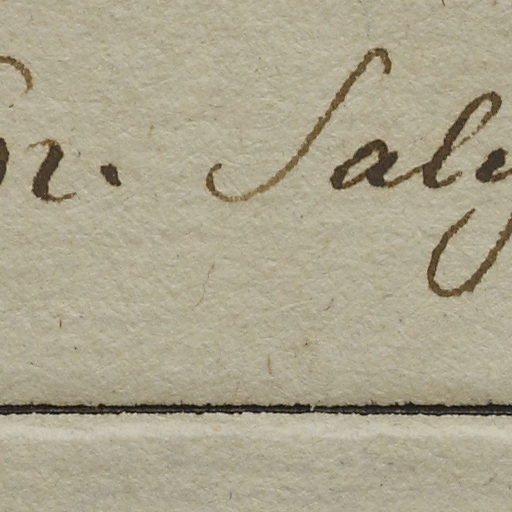 r. Saly